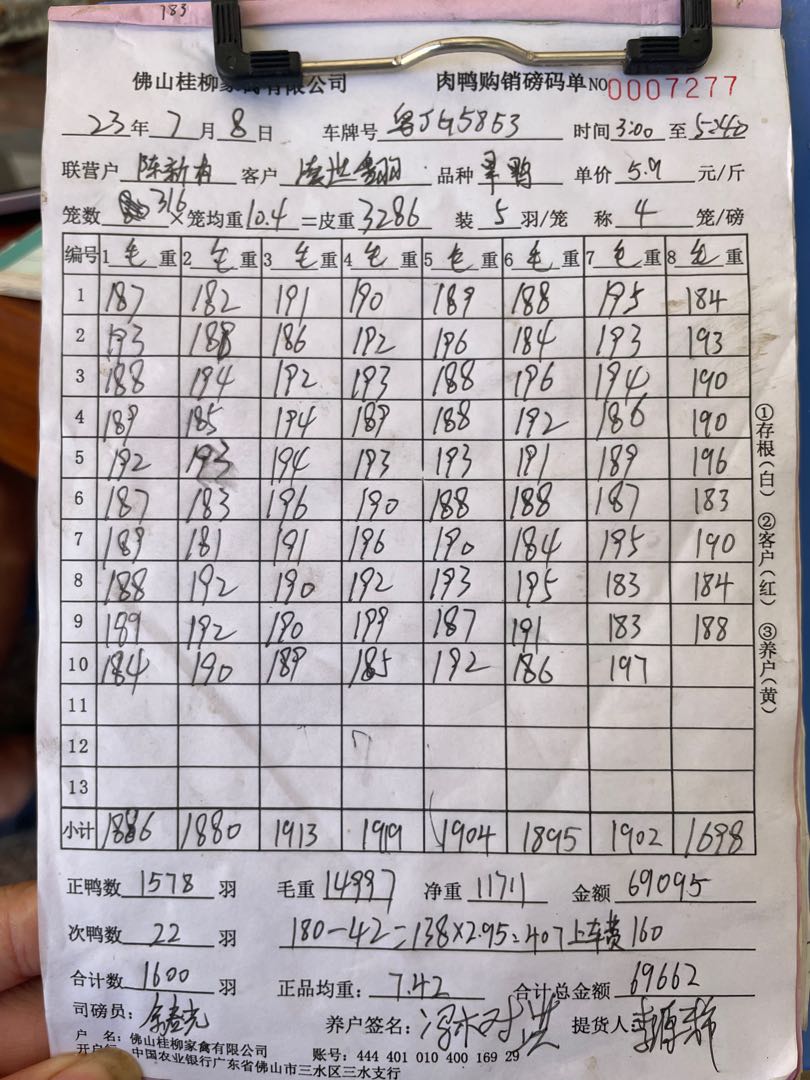 183
佛山桂柳家禽有限公司 肉鸭购销磅码单 NO 0007277
23年7月8日 车牌号 粤J G5853 时间 3:00 至 5:40
联营户 客户 品种 单价 5.9 元/斤
笼数 316 ×笼均重 10.4 =皮重 3286 装 5 羽/笼 称 4 笼/磅
编号 1 毛 重 2 毛 重 3 毛 重 4 毛 重 5 毛 重 6 毛 重 7 毛 重 8 毛 重
1 187 182 191 190 189 188 195 184
2 193 188 186 192 196 184 193 193
3 188 194 192 193 188 196 194 190
4 189 185 194 189 188 192 186 190
5 192 193 194 193 193 191 189 196
6 187 183 196 190 188 188 187 183
7 189 181 191 196 190 184 195 190
8 188 192 190 192 193 195 183 184
9 189 192 190 199 187 191 183 188
10 184 190 189 185 192 186 197
11
12
13
小计 1886 1880 1913 1919 1904 1895 1902 1698
正鸭数 1578 羽 毛重 14997 净重 11711 金额 69095
次鸭数 22 羽 180-42=138×2.95=407 上车费 160
合计数 1600 羽 正品均重: 7.42 合计总金额 69662
司磅员: 养户签名: 提货人:
户 名: 佛山桂柳家禽有限公司 账号: 444 401 010 400 169 29
开户行: 中国农业银行广东省佛山市三水区三水支行
①存根(白) ②客户(红) ③养户(黄)